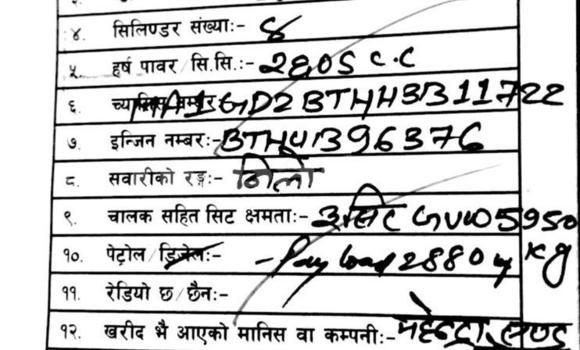 ४. सिलिण्डर संख्या:- ४
५. हर्ष पावर/सि.सि.:- 2805 C.C
६. च्यासिस नम्बर MA1GD2BTHH3B11722
७. इन्जिन नम्बर:- BTHH1396376
८. सवारीको रङ्ग:- निलो
९. चालक सहित सिट क्षमता:- 3सिट GVW 5950
१०. पेट्रोल/डिजेल:- - Pay load 2880 kg
११. रेडियो छ/छैन:-
१२. खरीद भै आएको मानिस वा कम्पनी:- महेन्द्रा